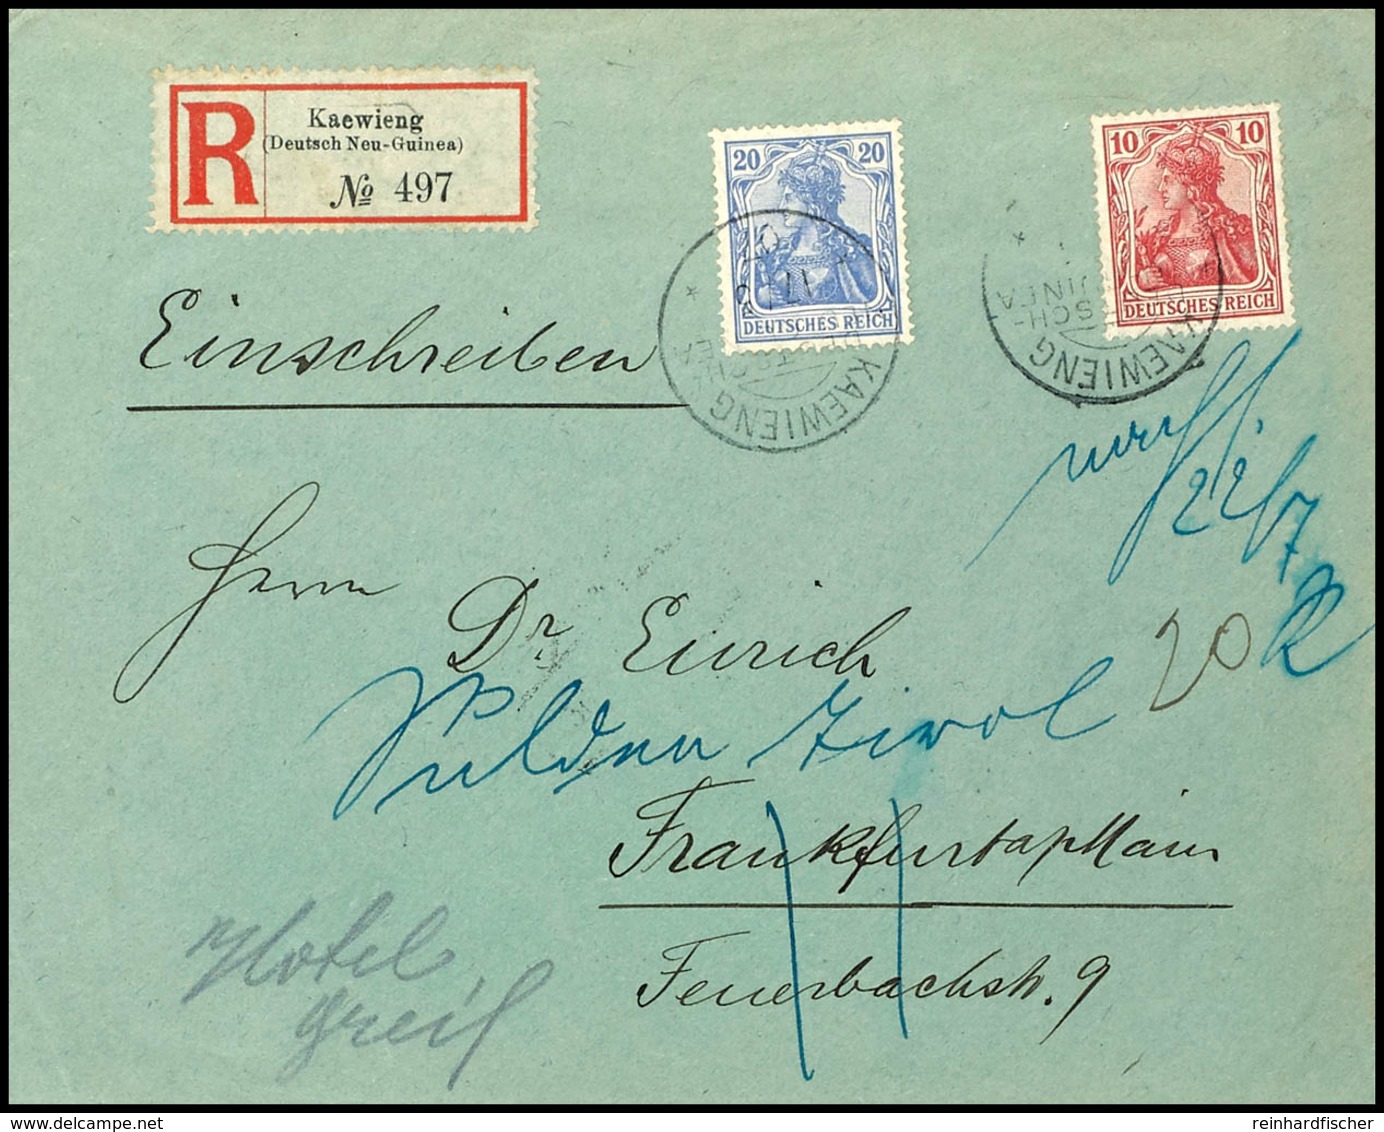 R
Kaewieng
(Deutsch Neu-Guinea)
№ 497
20 20
DEUTSCHES REICH
10 10
DEUTSCHES REICH
KAEWIENG
KAEWIENG
Einschreiben
22/7
Herrn
Dr. Eurich
20
Sulden Tirol
Frankfurt a/Main
Feuerbachstr. 9
Hotel
Greil
www.delcampe.net
reinhardfischer